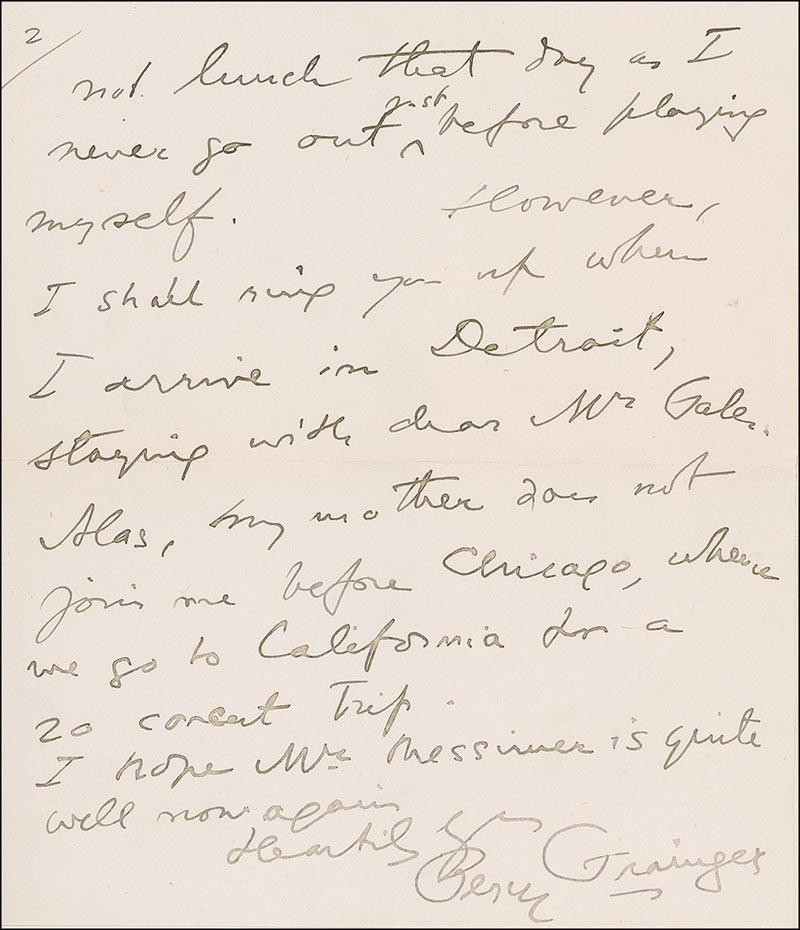 2/
not lunch that day as I
never go out just before playing
myself. However,
I shall ring you up when
I arrive in Detroit,
staying with dear Mr Gales.
Alas, my mother does not
join me before Chicago, whence
we go to California for a
20 concert trip.
I hope Mrs Messimer is quite
well now again
Heartily yrs
Percy Grainger